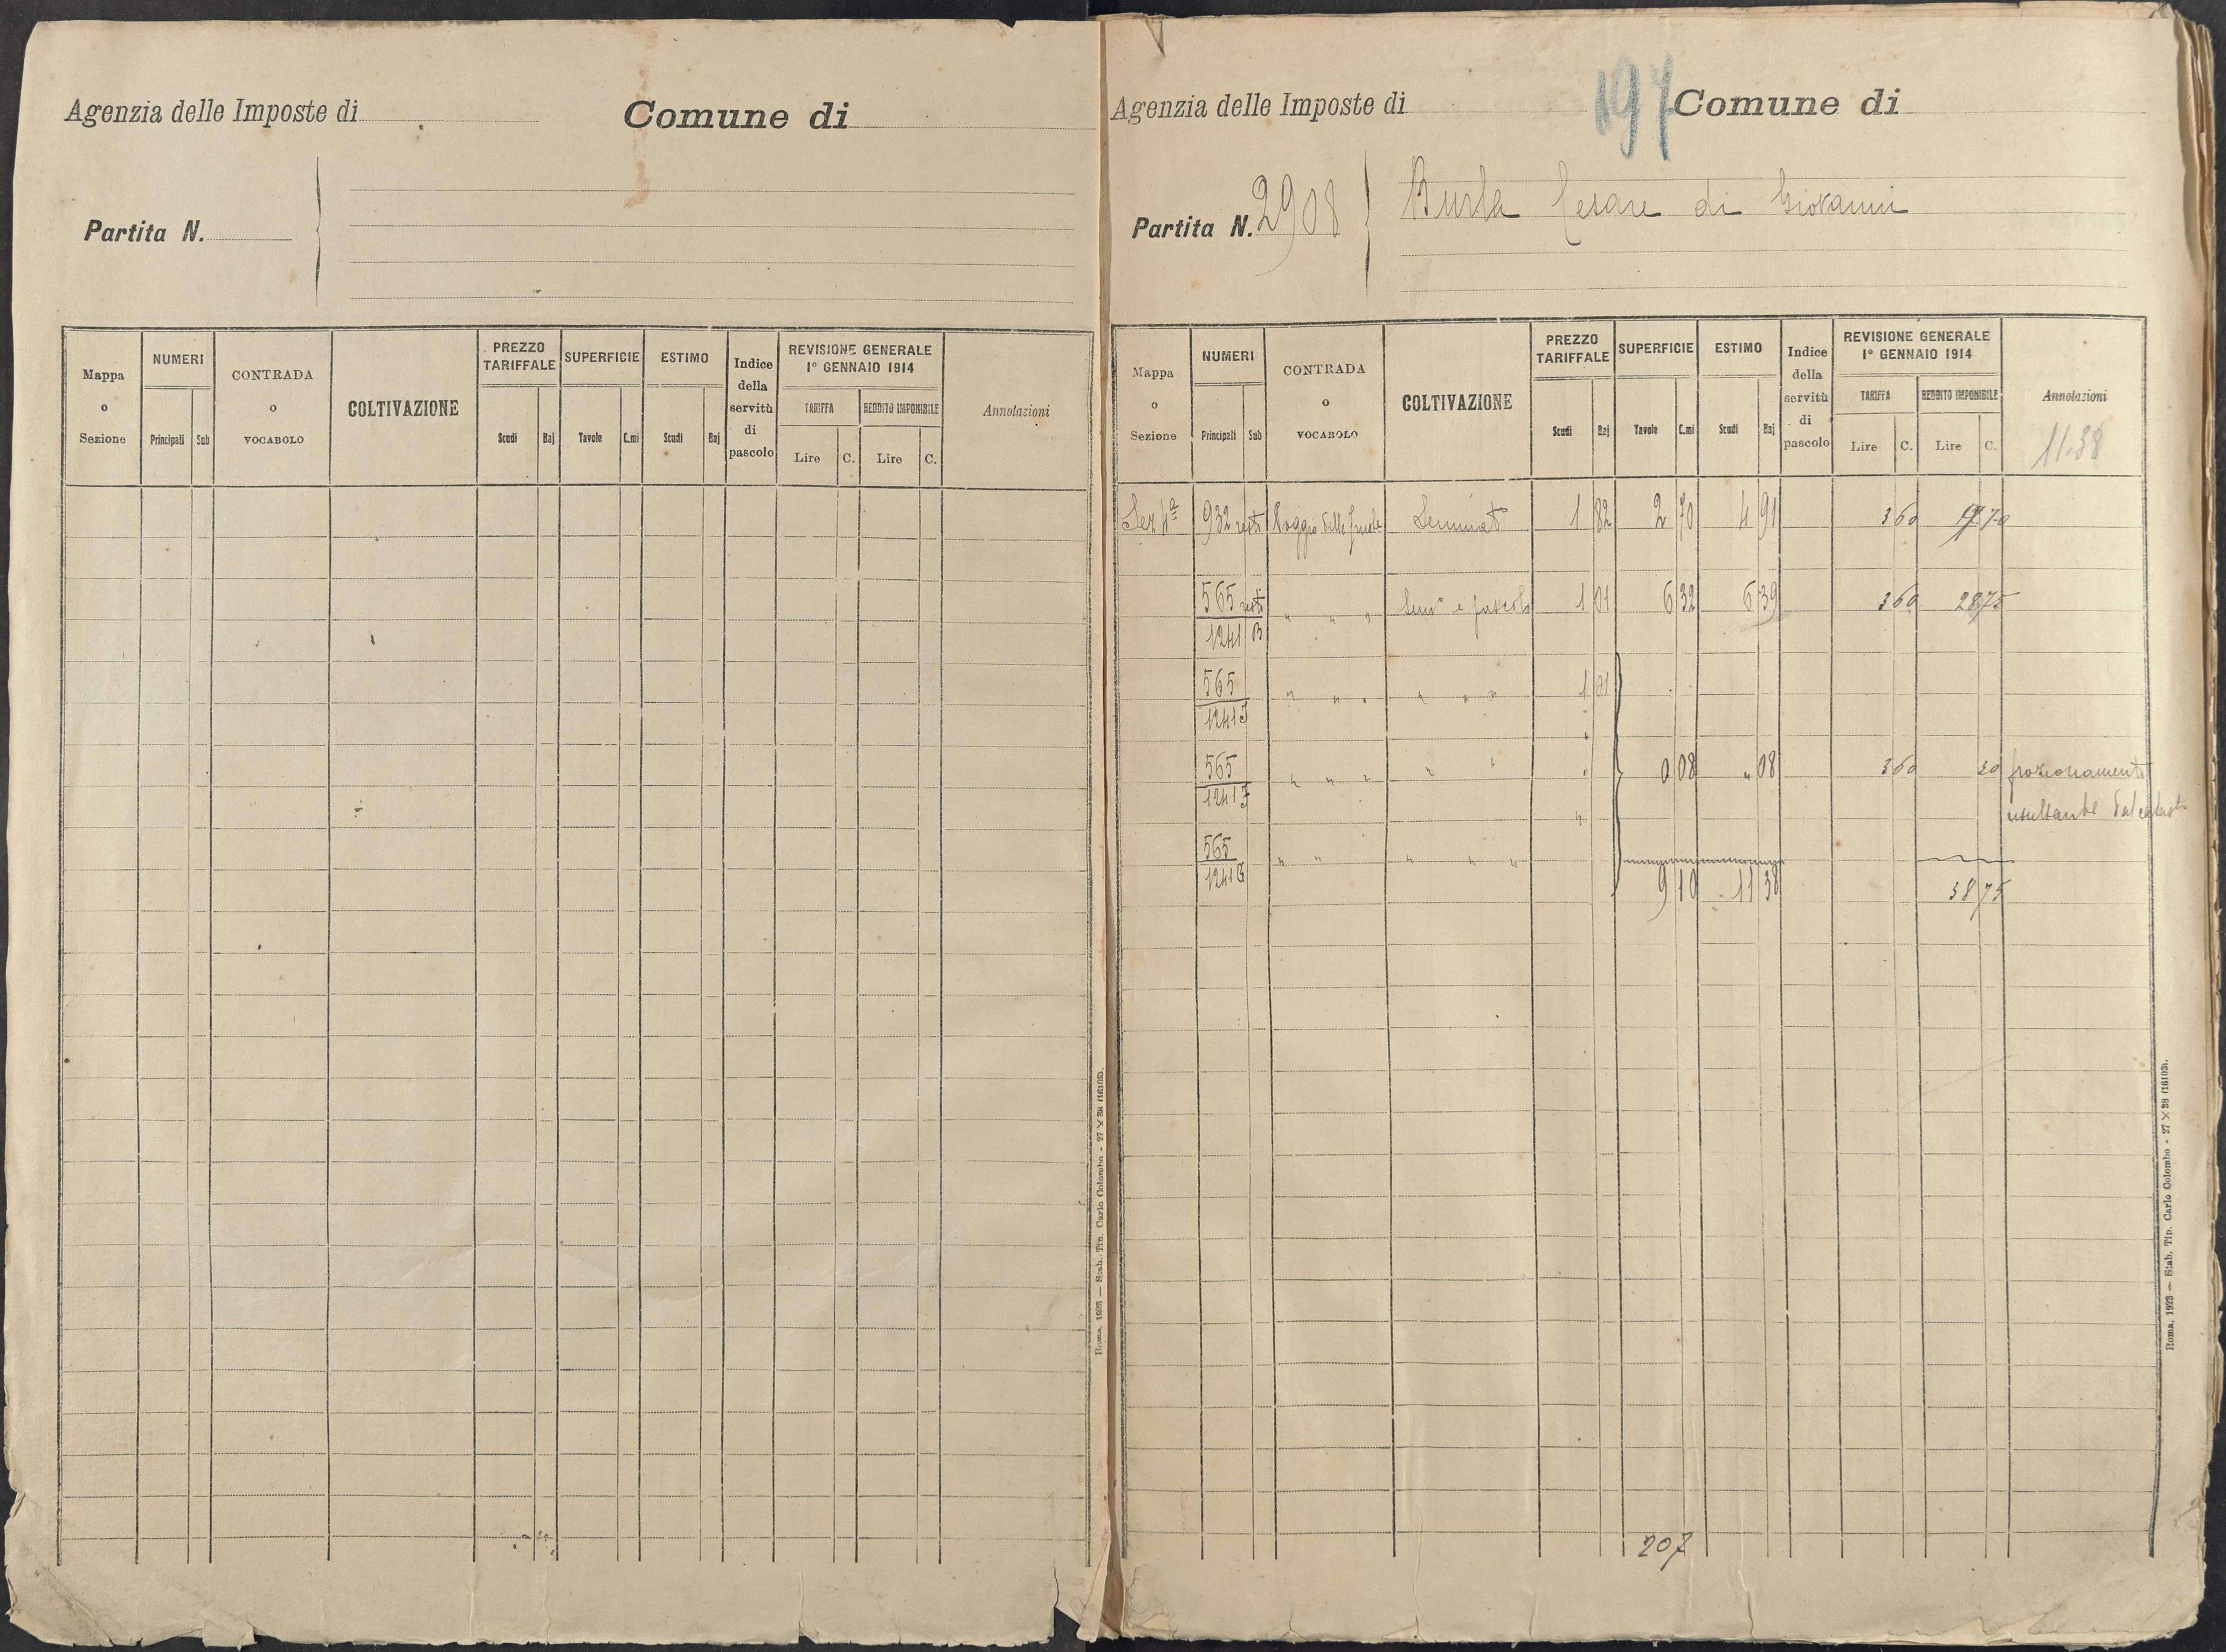 Agenzia delle Imposte di
Comune di
Partita N.
Mappa o Sezione
NUMERI
Principali Sub
CONTRADA o VOCABOLO
COLTIVAZIONE
PREZZO TARIFFALE
Scudi Baj
SUPERFICIE
Tavole C.mi
ESTIMO
Scudi Baj
Indice della servitù di pascolo
REVISIONE GENERALE
1º GENNAIO 1914
TARIFFA
Lire C.
REDDITO IMPONIBILE
Lire C.
Annotazioni
Roma, 1923 — Stab. Tip. Carlo Colombo - 27 × 38 (16103).
Agenzia delle Imposte di
197
Comune di
Partita N. 2908
Burla Cesare di Giovanni
Mappa o Sezione
NUMERI
Principali Sub
CONTRADA o VOCABOLO
COLTIVAZIONE
PREZZO TARIFFALE
Scudi Baj
SUPERFICIE
Tavole C.mi
ESTIMO
Scudi Baj
Indice della servitù di pascolo
REVISIONE GENERALE
1º GENNAIO 1914
TARIFFA
Lire C.
REDDITO IMPONIBILE
Lire C.
Annotazioni
11.38
Sez 1ª 932 resto Poggio delle Seminat 1 82 2 70 4 91 3 60 70
565 resto " " " Semº e pascolo 1 01 6 32 6 39 3 60 28 75
1241 B
565 " " " " " " 1 01
1241
565 " " " " " " 0 08 " 08 3 60 30 frazionamento
1241 F risultante dal catasto
565 " " " " "
1241 G 9 10 11 38 38 75
207
Roma, 1923 — Stab. Tip. Carlo Colombo - 27 × 38 (16103).